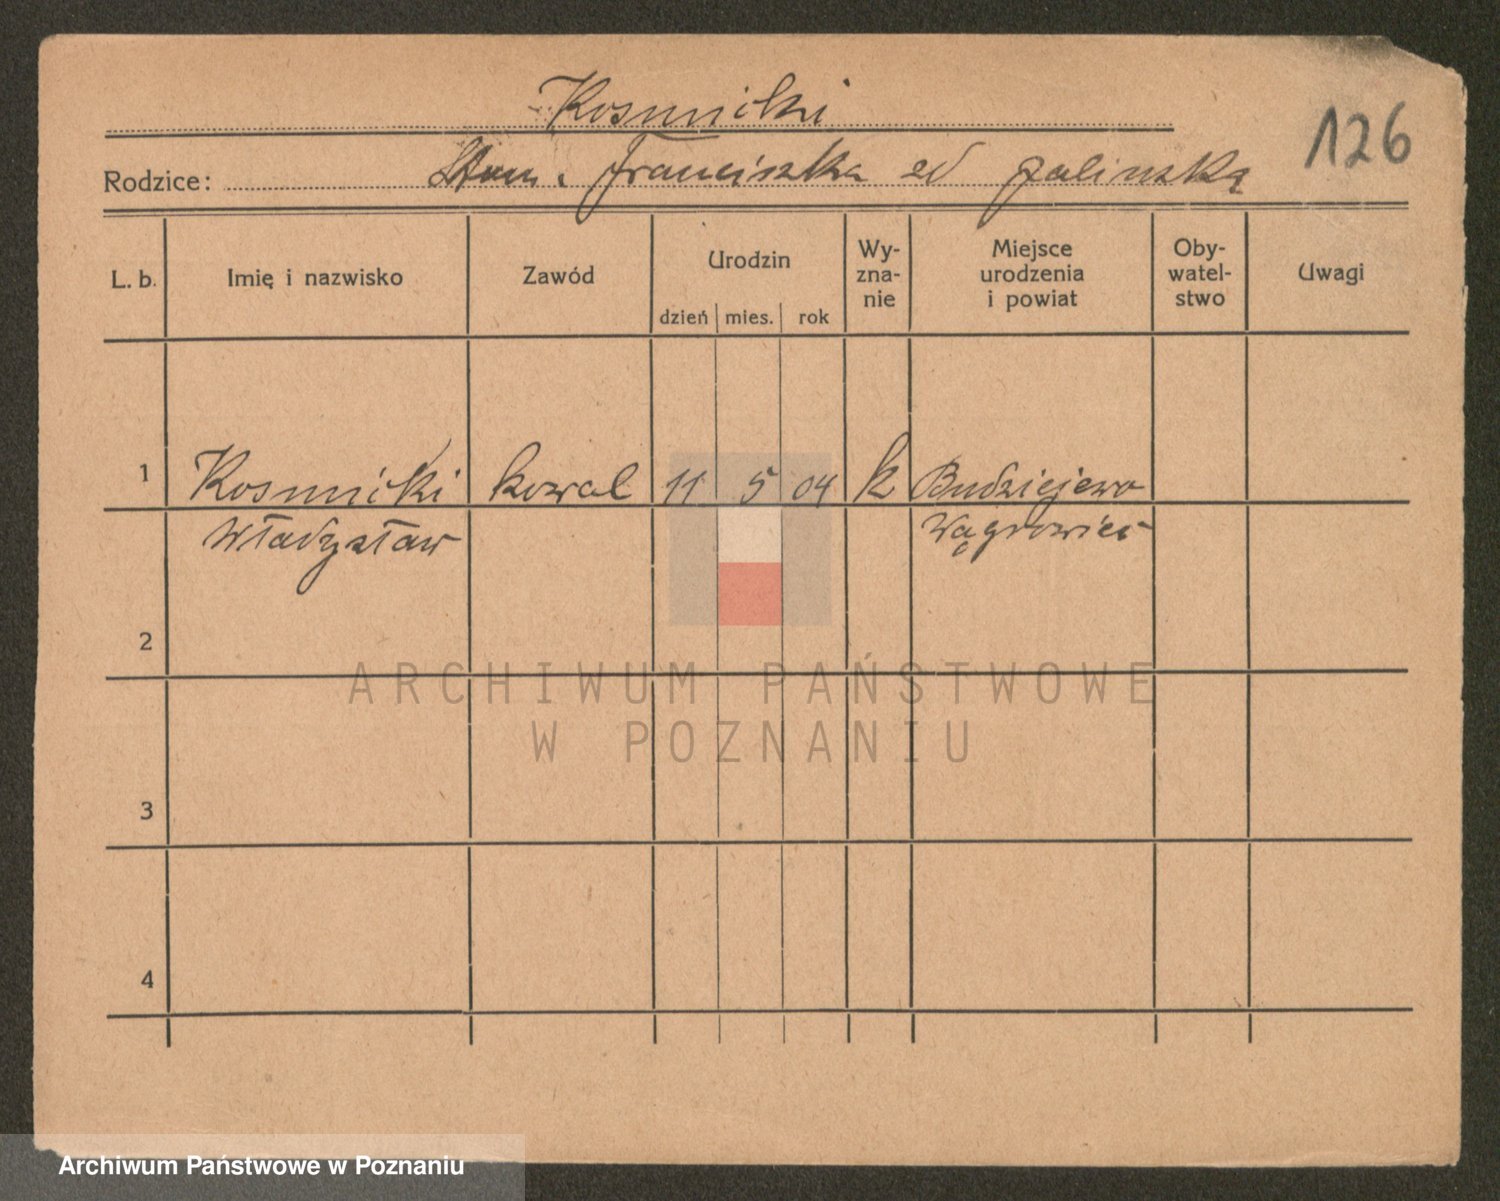 Kosmicki
126
Rodzice: Stan. Franciszka ed Galinską
L. b. Imię i nazwisko Zawód Urodzin dzień mies. rok Wy-zna-nie Miejsce urodzenia i powiat Oby-watel-stwo Uwagi
1 Kosmicki kowal 11 5 04 k Budziejewo
Władysław Wągrowiec
2
3
4
ARCHIWUM PAŃSTWOWE
W POZNANIU
Archiwum Państwowe w Poznaniu